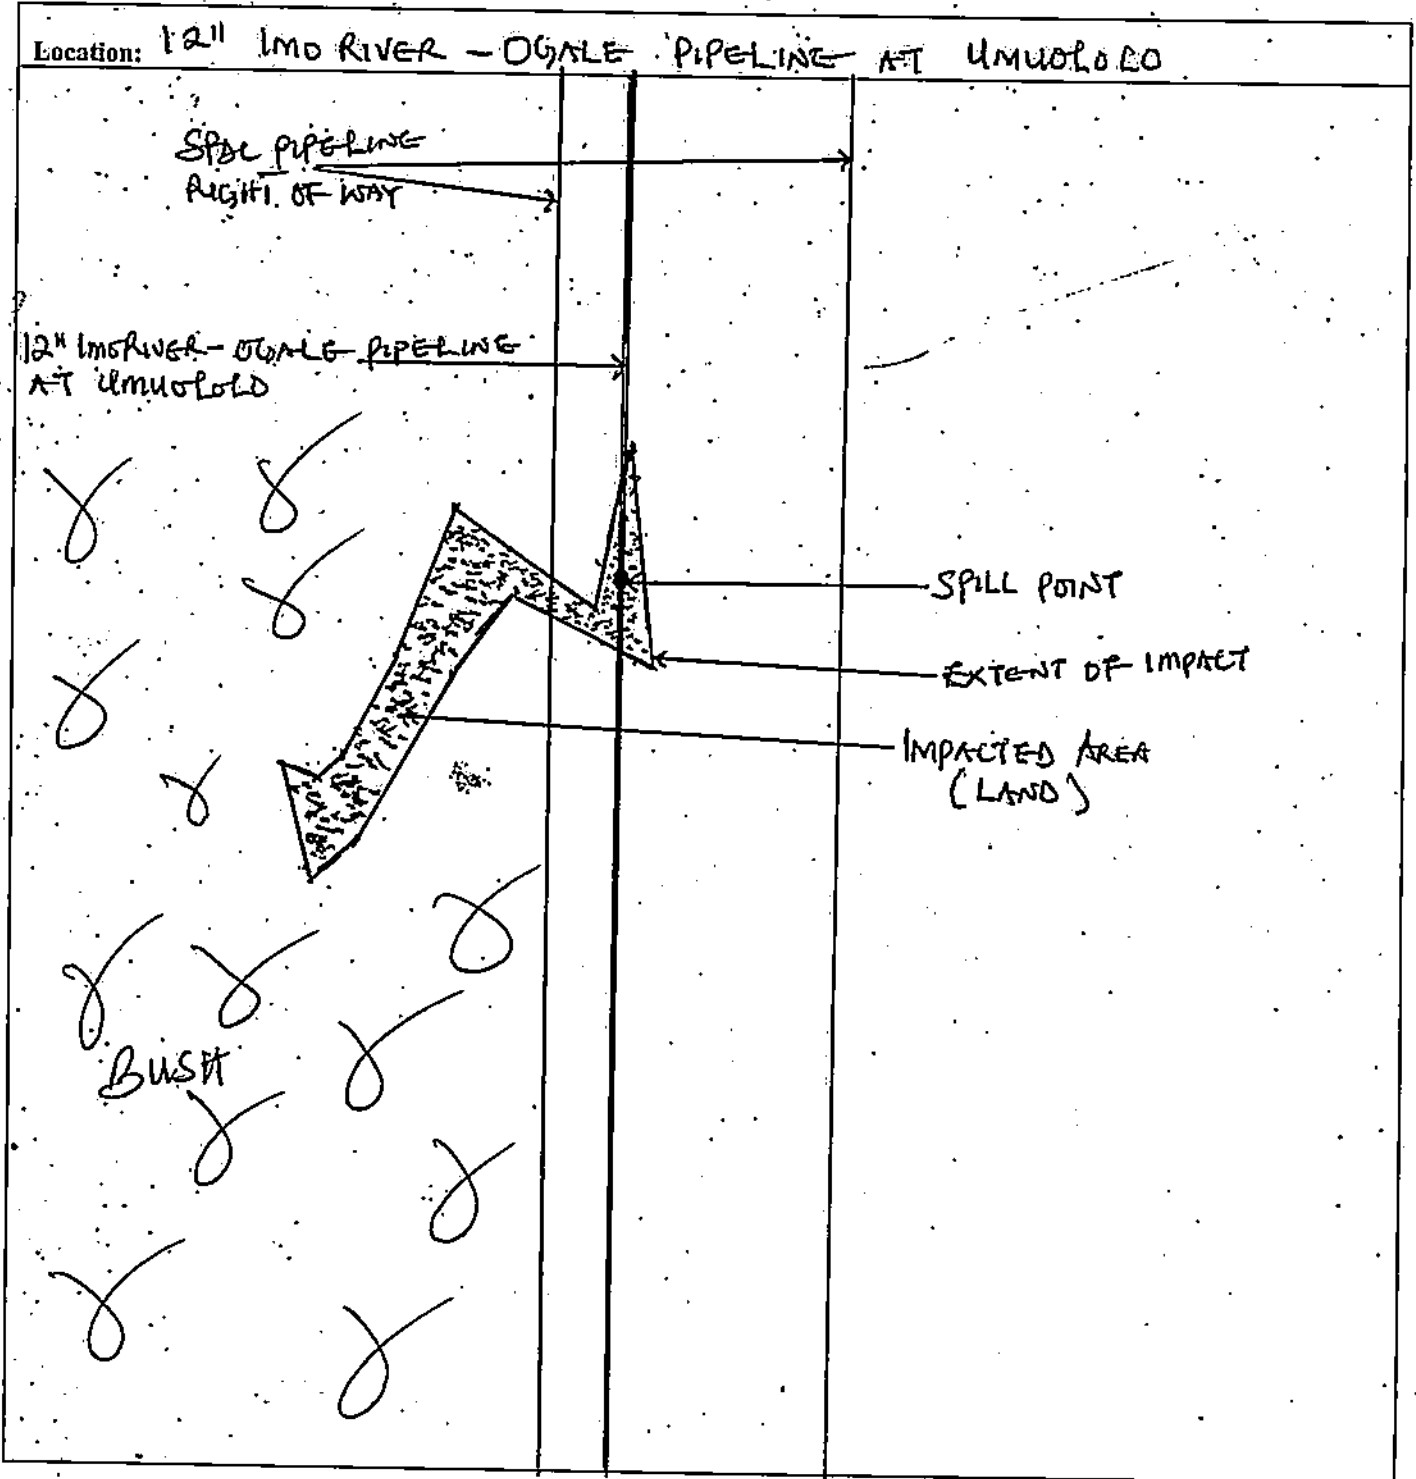 Location: 12" IMO RIVER - OGALE PIPELINE AT UMUOLOLO
SPDC PIPELINE
RIGHT OF WAY
12" IMO RIVER - OGALE PIPELINE
AT UMUOLOLO
SPILL POINT
EXTENT OF IMPACT
IMPACTED AREA
(LAND)
BUSH